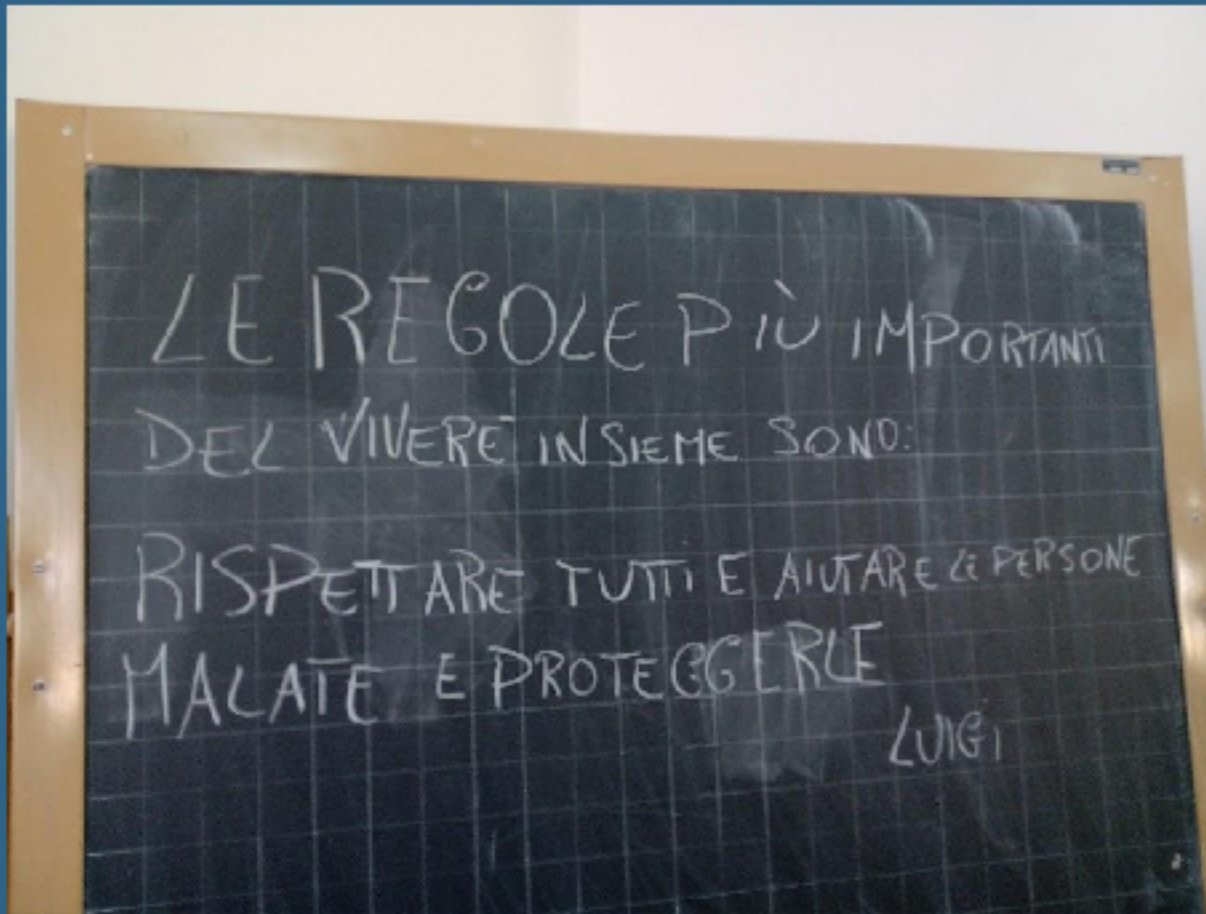 LE REGOLE PIÙ IMPORTANTI
DEL VIVERE INSIEME SONO:
RISPETTARE TUTTI E AIUTARE LE PERSONE
MALATE E PROTEGGERLE
LUIGI